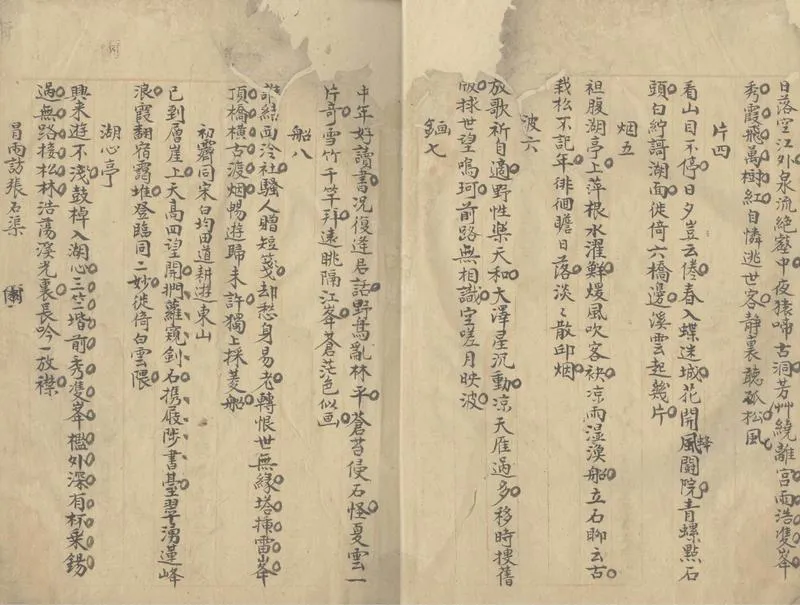 日落空江外泉流絶壑中夜猿啼古洞芳艸繞離宮雨浩雙峯
秀霞飛萬樹紅自憐逃世客静裏聽孤松風
片四
看山目不停日夕豈云倦春入蝶迷城花開風闘院青螺點石
頭白紵謌湖面徙倚六橋邊溪雲起幾片
烟五
袒腹湖亭上萍根水濯鮮煖風吹客袂凉雨湿漁船立石聊云古
栽松不記年徘徊瞻日落淡〻散邱烟
波六
放歌祈自適野性樂天和大澤星沉動凉天雁過多移時搜舊
版拭世望鳴珂前路無相識空嗟月映波
画七
中年好讀書况復逢君話野鳥亂林平蒼苔侵石怪夏雲一
片奇雪竹千竿拜遠眺隔江峯蒼茫色似画
船八
詩結西泠社騷人贈短箋却愁身易老轉恨世無緣塔插雷峯
頂橋橫古渡烟暢遊歸未許獨上採菱船
初霽同宋白均田道耕遊東山
已到層崖上天高四望開捫蘿窺劍石携屐陟書臺翠湧蓮峰
浪霞翻宿靄堆登臨同二妙徙倚白雲隈
湖心亭
興来遊不淺鼓棹入湖心三竺堦前秀雙峯檻外深有杯乘鍚
過無路接松林浩蕩溪光裏長吟一放襟
冒雨訪張石渠